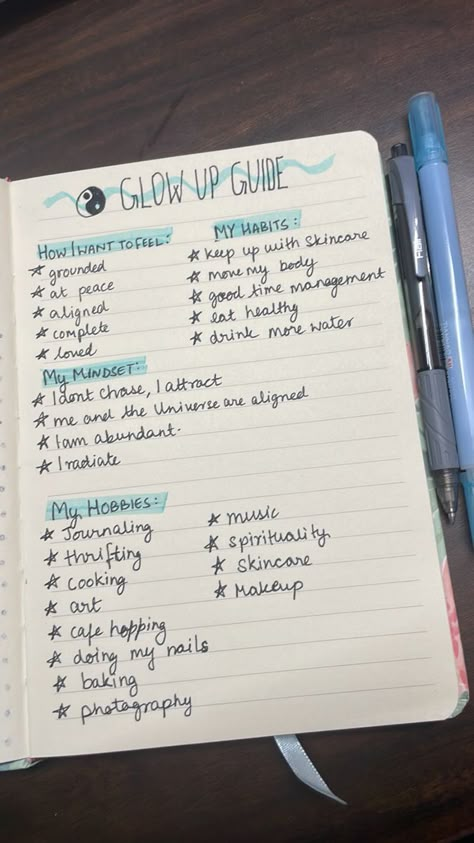 GLOW UP GUIDE
HOW I WANT TO FEEL:
☆ grounded
☆ at peace
☆ aligned
☆ complete
☆ loved
MY HABITS:
☆ keep up with skincare
☆ move my body
☆ good time management
☆ eat healthy
☆ drink more water
MY MINDSET:
☆ I dont chase, I attract
☆ me and the Universe are aligned
☆ I am abundant.
☆ I radiate
MY HOBBIES:
☆ Journaling
☆ thrifting
☆ cooking
☆ art
☆ cafe hopping
☆ doing my nails
☆ baking
☆ photography
☆ music
☆ spirituality
☆ skincare
☆ Makeup